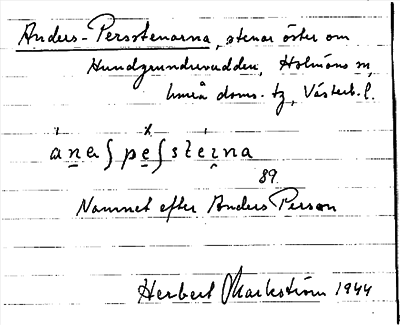 Anders-Persstenarna, stenar öster om
Hundgrundsudden, Holmöns sn,
Umeå doms. tg, Västerb. l.
anaʃpeʃsteɩna
89
Namnet efter Anders Person
Herbert Markström 1944